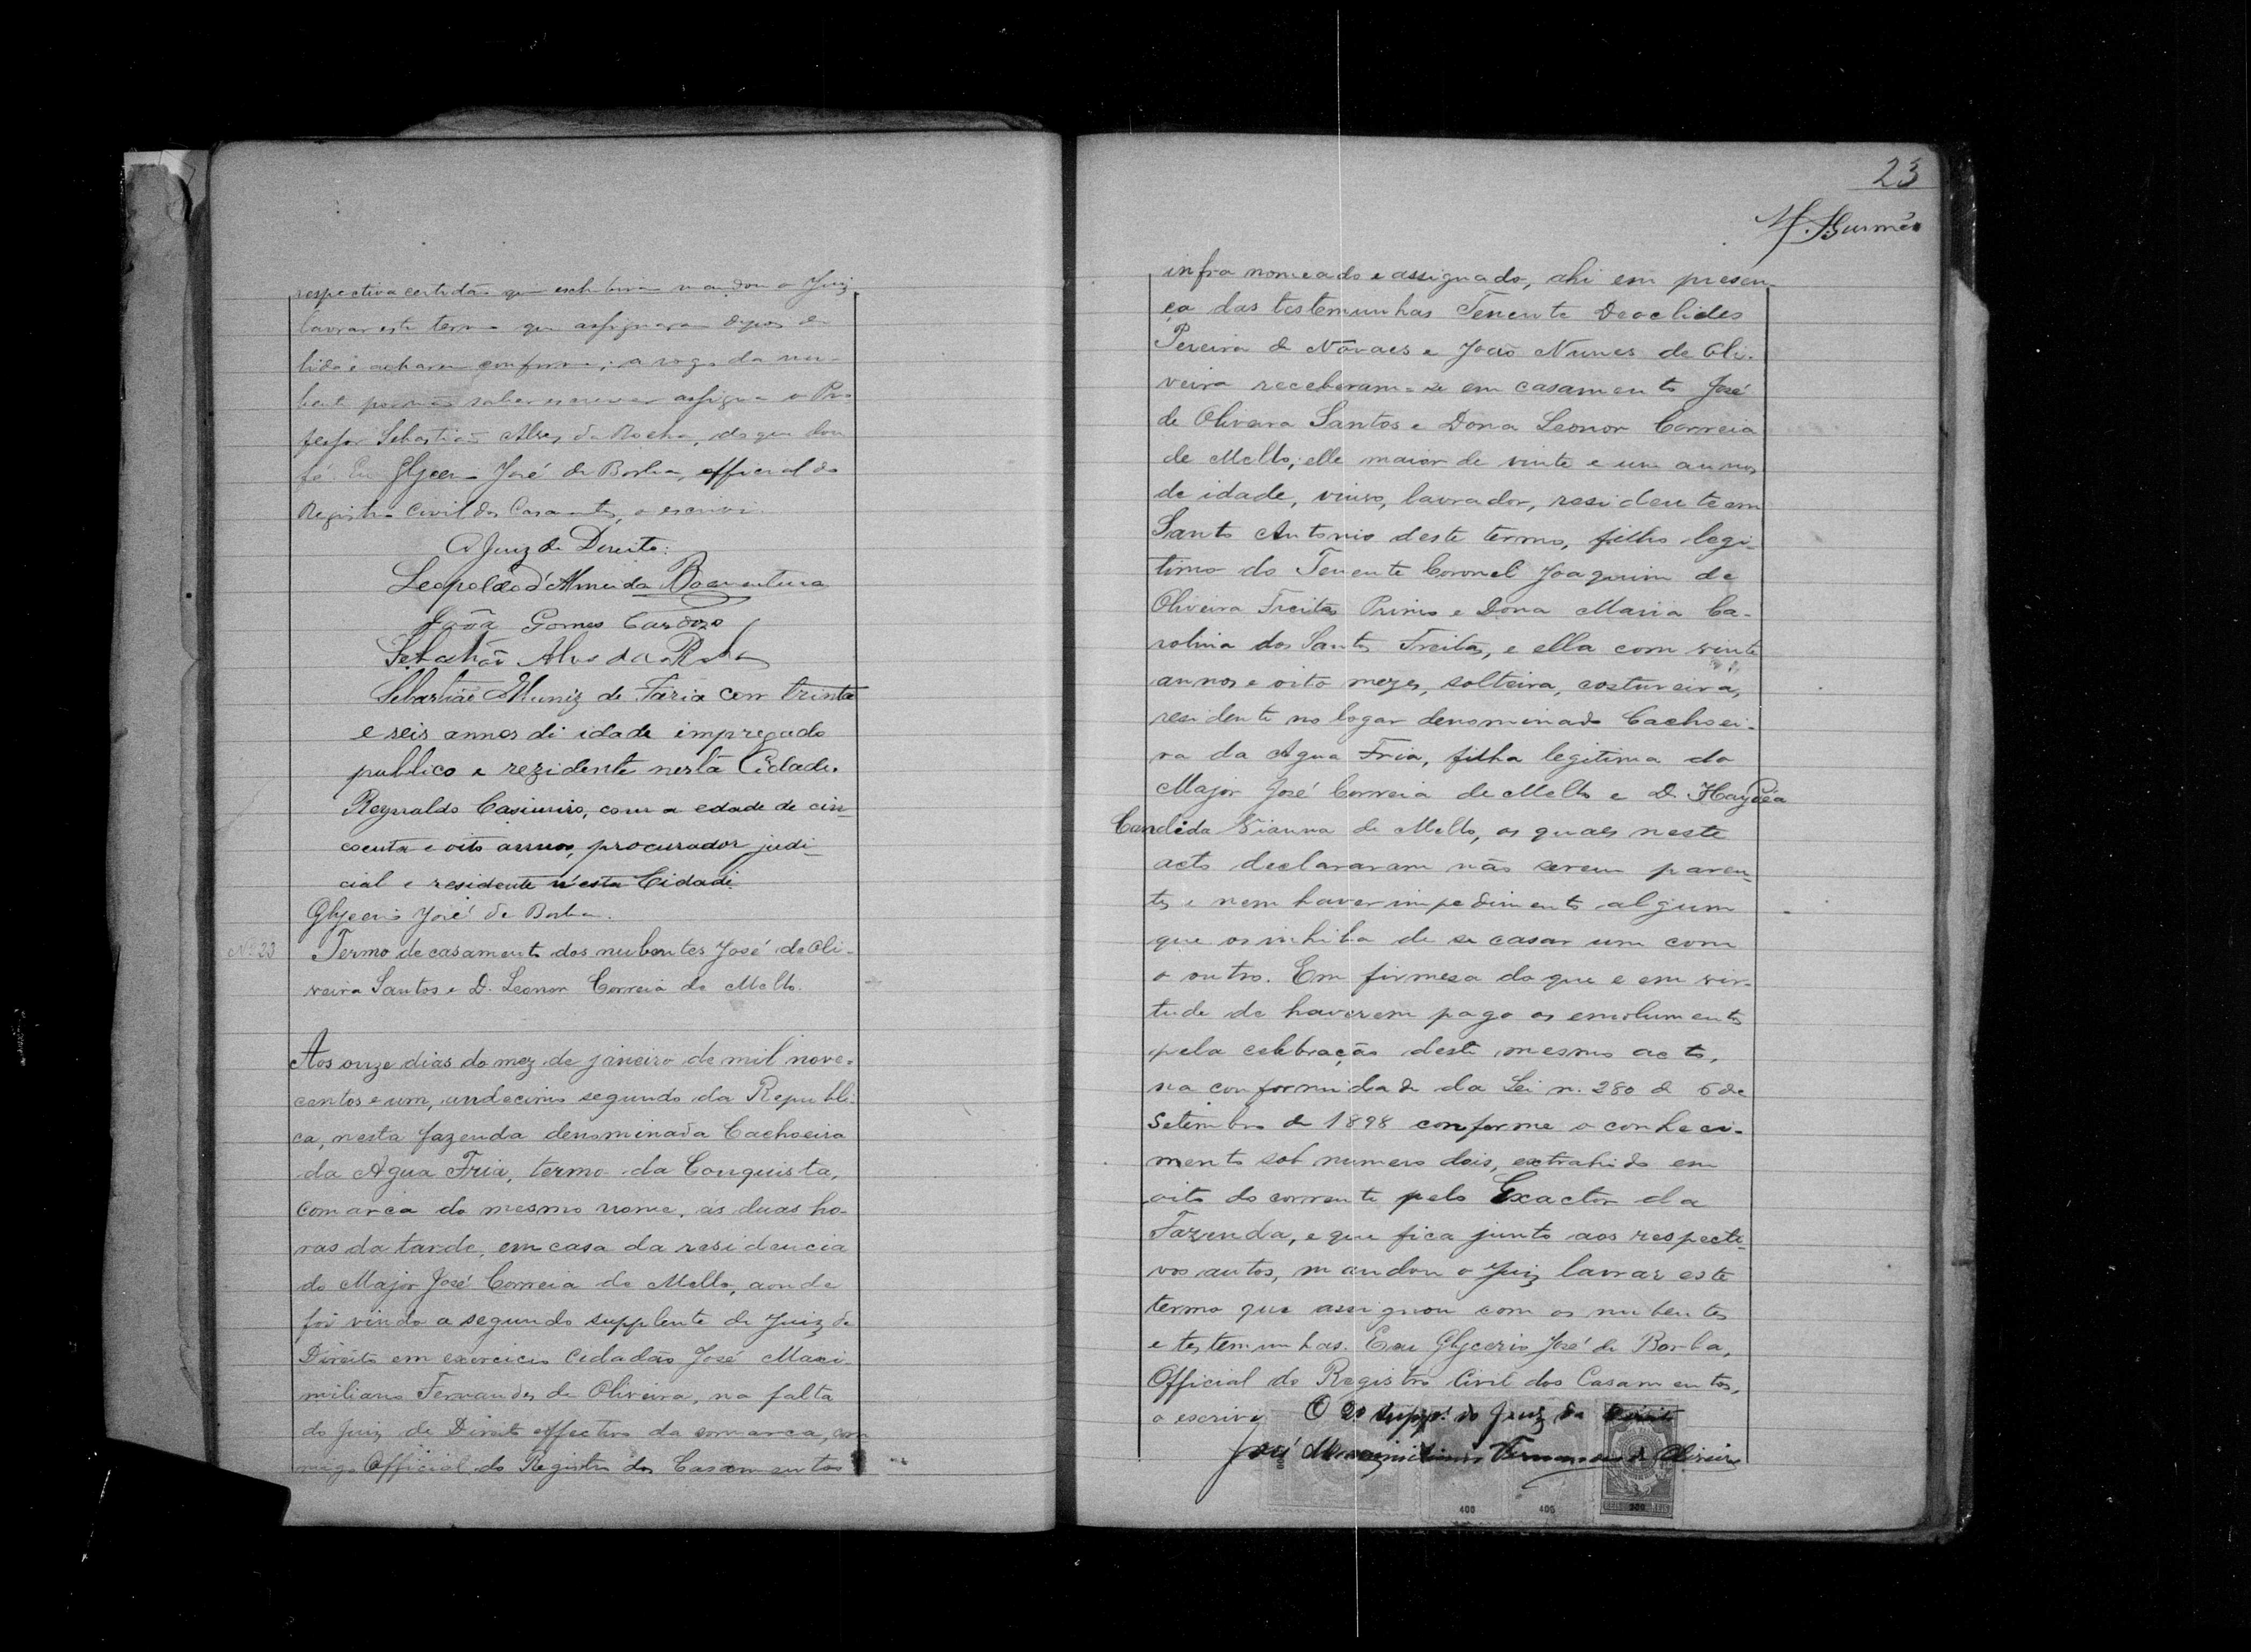 respectiva certidão que exhibiram mandou o Juiz
lavrar este termo que assignaram depois de
lido e acharem conforme; a rogo da nu-
bente por não saber escrever assigna o Pro-
fessor Sebastião Alves da Rocha, do que dou
fé. Eu Glycerio José de Borba, official do
Registro Civil dos Casamentos, o escrivi.
O Juiz de Direito:
Leopoldo d'Almeida Boaventura
João Gomes Cardozo
Sebastião Alves da Rocha
Sebastião Muniz de Faria com trinta
e seis annos di idade impregado
publico e rezidente nesta Cidade.
Reynaldo Casimiro, com a edade de cin-
coenta e oito annos, procurador judi-
cial e residente n'esta Cidade
Glycerio José de Borba.
Nº 23 Termo de casamento dos nubentes José de Oli-
veira Santos e D. Leonor Correia de Mello.
Aos onze dias do mez de janeiro de mil nove-
centos e um, undecimo segundo da Republi-
ca, nesta fazenda denominada Cachoeira
da Agua Fria, termo da Conquista,
comarca do mesmo nome, ás duas ho-
ras da tarde, em casa da residencia
do Major José Correia de Mello, aonde
foi vindo o segundo supplente do Juiz de
Direito em exercicio Cidadão José Maxi-
miliano Fernandes de Oliveira, na falta
do Juiz de Direito effectivo da comarca, com
migo Official do Registro dos Casamentos
23
infra nomeado e assignado, ahi em presen-
ça das testemunhas Tenente Deoclides
Pereira de Nóvaes e João Nunes de Oli-
veira receberam-se em casamento José
de Oliveira Santos e Dona Leonor Correia
de Mello; elle maior de vinte e um annos
de idade, viuvo, lavrador, residente em
Santo Antonio deste termo, filho legi-
timo do Tenente Coronel Joaquim de
Oliveira Freitas Primo e Dona Maria Ca-
rolina dos Santos Freitas, e ella com vinte
annos e oito mezes, solteira, costureira,
residente no logar denominado Cachoei-
ra da Agua Fria, filha legitima do
Major José Correia de Mello e D. Haydéa
Candida Vianna de Mello, os quaes neste
acto declararam não serem paren-
tes e nem haver impedimento algum
que os inhiba de se casar um com
o outro. Em firmesa do que e em vir-
tude de haverem pago os emolumentos
pela celebração deste mesmo acto,
na conformidade da Lei n. 280 de 6 de
Setembro de 1898 conforme o conheci-
mento sob numero dois, extrahido em
oito do corrente pelo Exactor da
Fazenda, e que fica junto aos respecti-
vos autos, mandou o Juiz lavrar este
termo que assignou com os nubentes
e testemunhas. Eu Glycerio José de Borba,
Official do Registro Civil dos Casamentos,
o escrivi O 2º supp.e do Juiz de Direito
José Maximiliano Fernandes de Oliveira
400 400 300